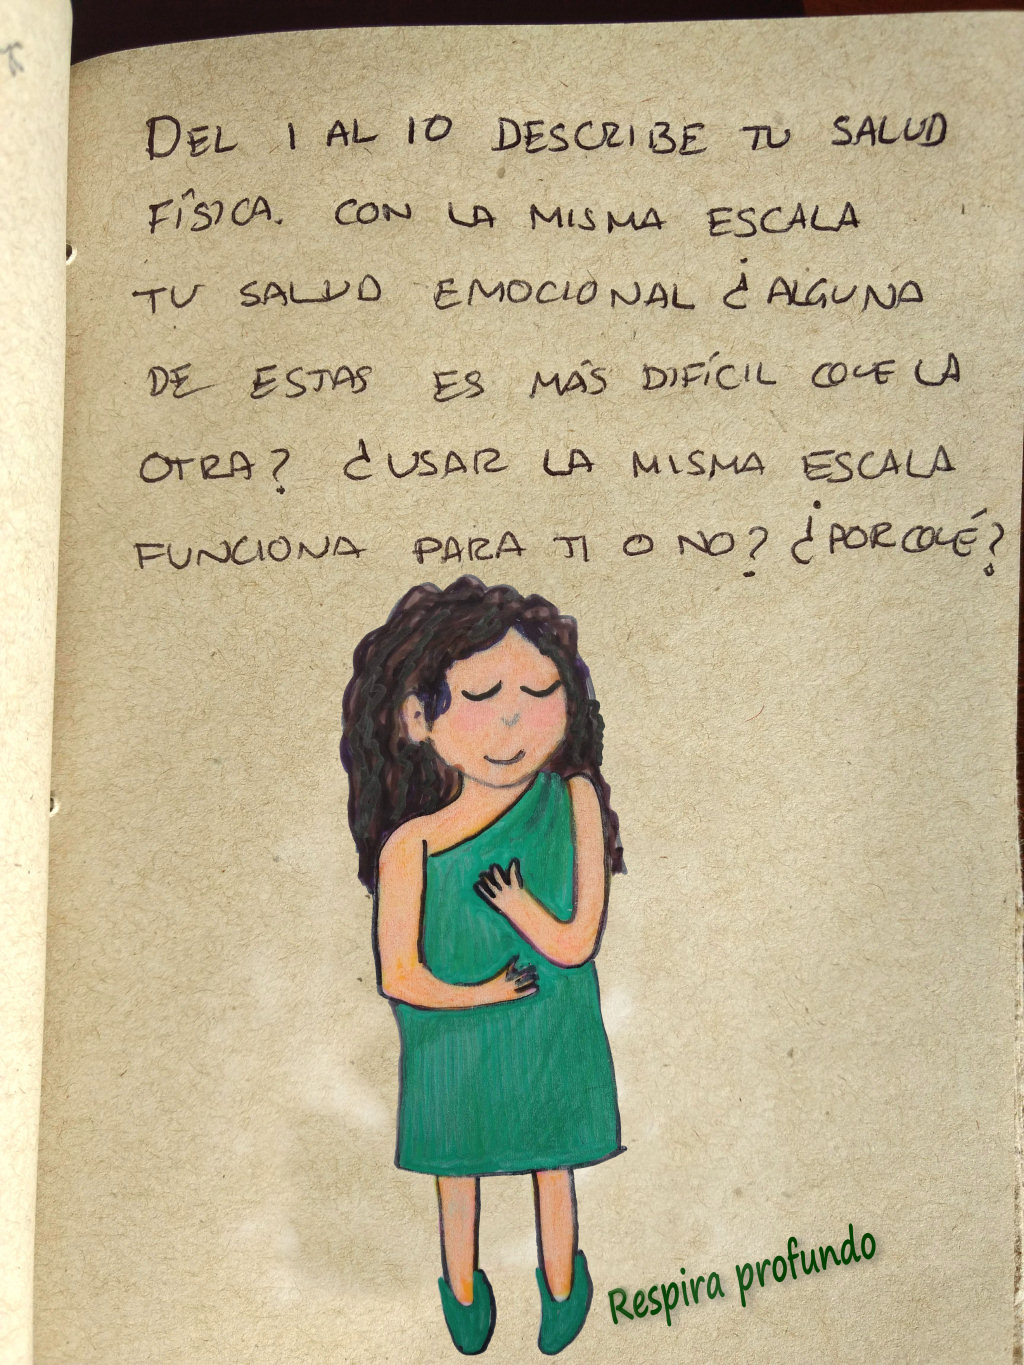 DEL 1 AL 10 DESCRIBE TU SALUD
FÍSICA. CON LA MISMA ESCALA
TU SALUD EMOCIONAL ¿ALGUNA
DE ESTAS ES MÁS DIFÍCIL QUE LA
OTRA? ¿USAR LA MISMA ESCALA
FUNCIONA PARA TI O NO? ¿POR QUÉ?
Respira profundo